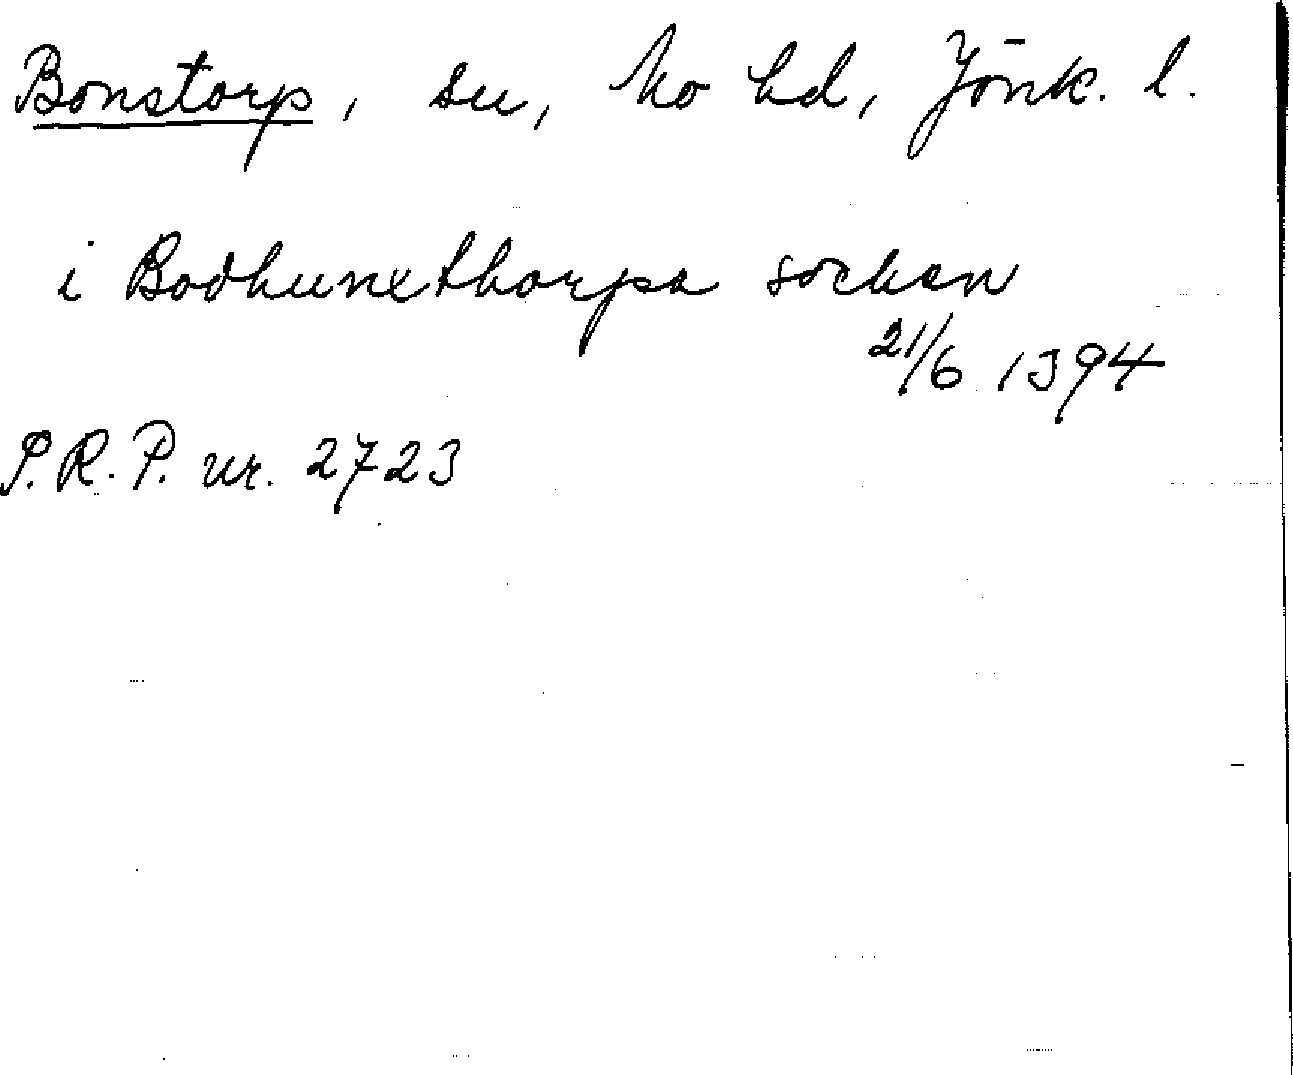 Bonstorp, sn, Mo hd, Jönk. l.
i Bodhunxthorpa sockn
21/6 1394
S.R.P. nr. 2723